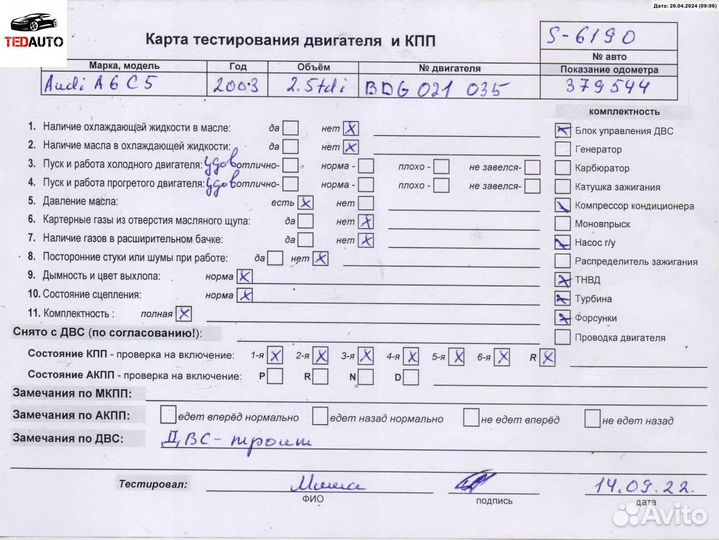 Дата: 26.04.2024 (09:06)
TEDAUTO
Карта тестирования двигателя и КПП
S-6190
№ авто
Марка, модель Год Объём № двигателя Показание одометра
Audi A6 C5 2003 2.5tdi BDG 021 035 379544
комплектность
1. Наличие охлаждающей жидкости в масле: да нет X
Блок управления ДВС
2. Наличие масла в охлаждающей жидкости: да нет X
Генератор
3. Пуск и работа холодного двигателя: удов отлично- норма - плохо - не завелся-
Карбюратор
4. Пуск и работа прогретого двигателя: удов отлично- норма - плохо - не завелся-
Катушка зажигания
5. Давление масла: есть X нет
Компрессор кондиционера
6. Картерные газы из отверстия масляного щупа: да нет X
Моновпрыск
7. Наличие газов в расширительном бачке: да нет X
Насос г/у
8. Посторонние стуки или шумы при работе: да нет X
Распределитель зажигания
9. Дымность и цвет выхлопа: норма X
ТНВД
10. Состояние сцепления: норма X
Турбина
11. Комплектность : полная X
Форсунки
Снято с ДВС (по согласованию!):
Проводка двигателя
Состояние КПП - проверка на включение: 1-я X 2-я X 3-я X 4-я X 5-я X 6-я X R X
Состояние АКПП - проверка на включение: P R N D
Замечания по МКПП:
Замечания по АКПП: едет вперёд нормально едет назад нормально не едет вперёд не едет назад
Замечания по ДВС: ДВС - троит
Тестировал: Миша 14.09.22.
ФИО подпись дата
Avito